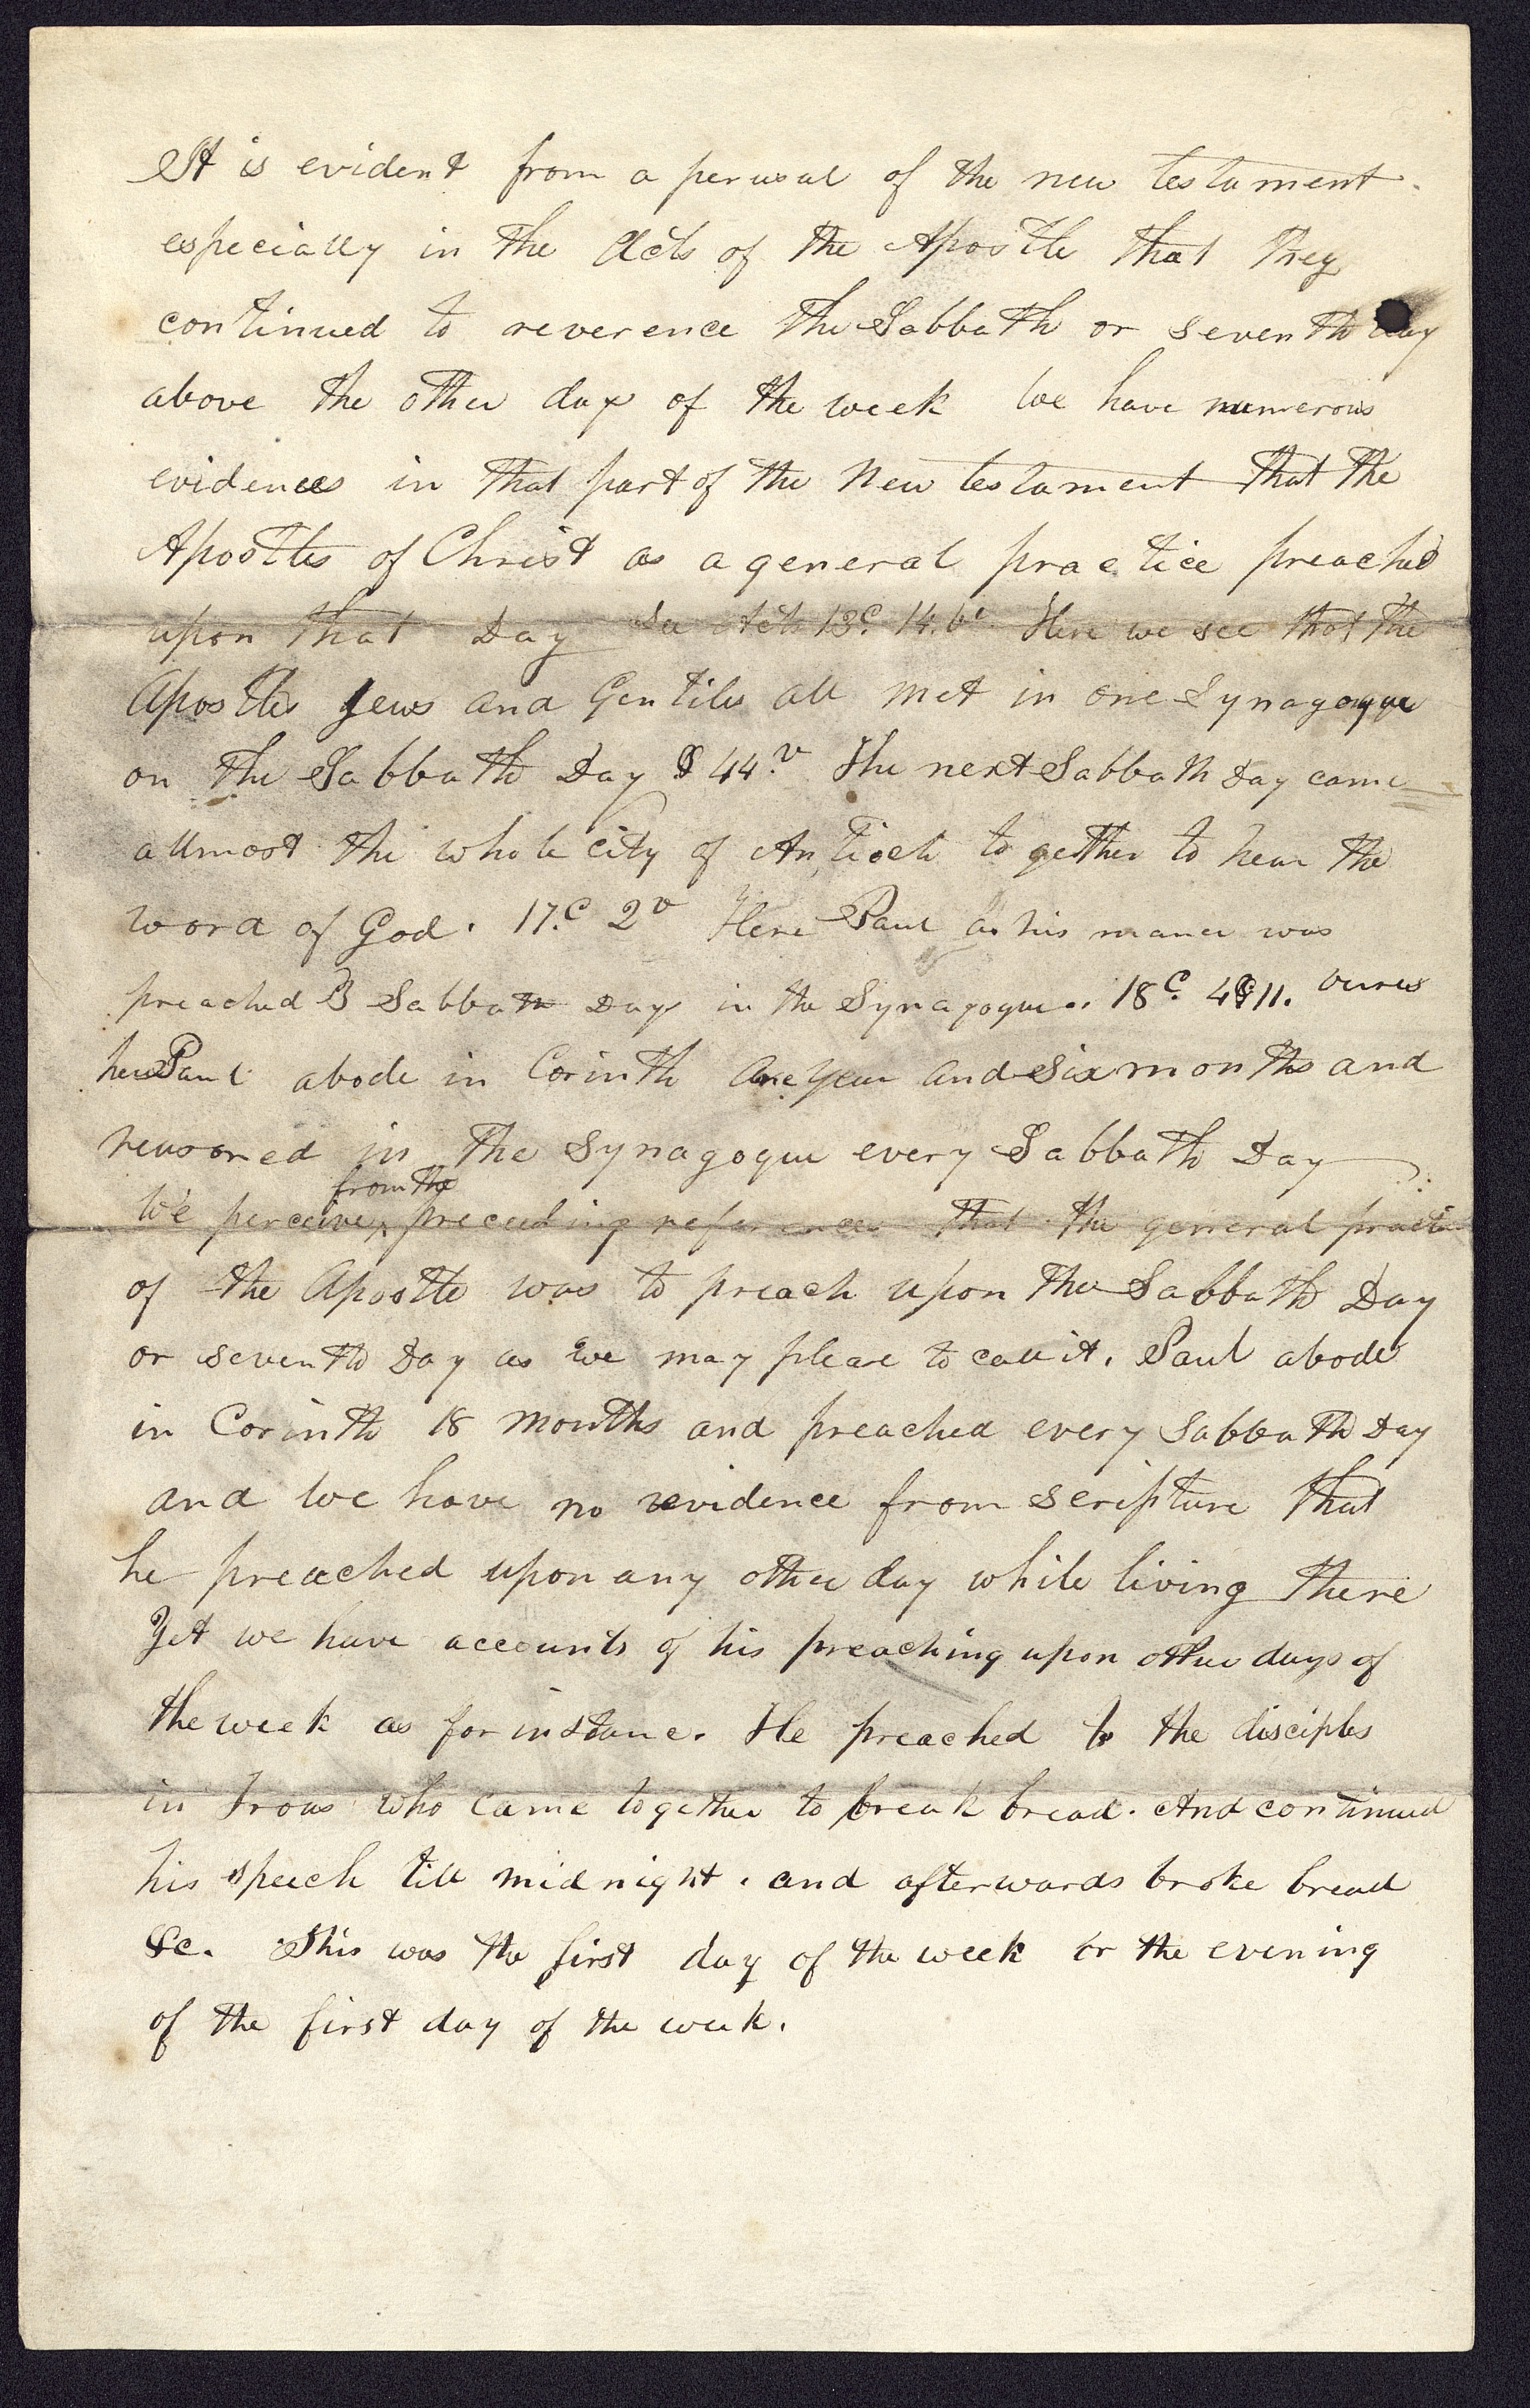 It is evident from a perusal of the new testament.
especially in the Acts of the Apostle that they
continued to reverence the Sabbath or seventh day
above the other days of the week We have numerous
evidences in that part of the New testament that the
Apostles of Christ as a general practice preached
upon that Day See Acts 13.c 14.v. Here we see that the
Apostles Jews and Gentiles all met in one Synagogue
on the Sabbath Day & 44.v The next Sabbath Day came
allmost the whole city of Antioch together to hear the
word of God. 17.c 2v Here Paul as his maner was
preached 3 Sabbath Days in the Synagogue. 18.c 4&11. verses
here Paul abode in Corinth one year and six months and
reasoned in the Synagogue every Sabbath Day
from the
We perceive ^ preceeding references that the general practi
of the Apostle was to preach upon the Sabbath Day
or seventh Day as we may please to call it. Paul abode
in Corinth 18 months and preached every Sabbath Day
and we have no evidence from scripture that
he preached upon any other day while living there
Yet we have accounts of his preaching upon other days of
the week as for instance. He preached to the disciples
in Troas who came together to break bread. And continued
his speech till midnight. and afterwards broke bread
&c. This was the first day of the week or the evening
of the first day of the week.